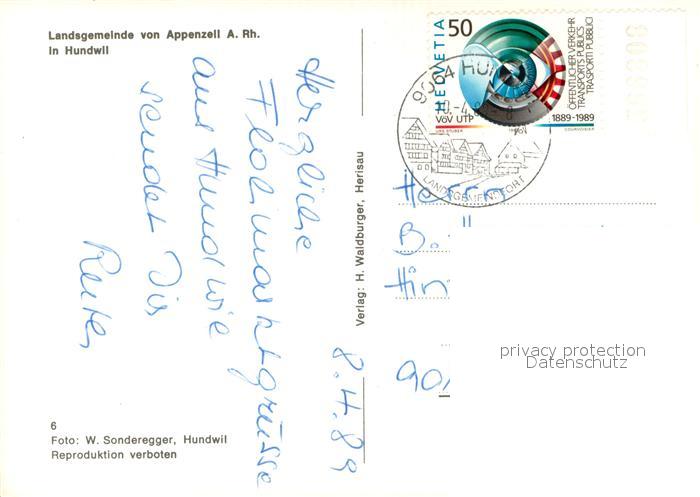 Landsgemeinde von Appenzell A. Rh.
in Hundwil
Herzliche
Flohmarktgrüsse
aus Hundwil
sendet Dir
8.4.89
Verlag: H. Waldburger, Herisau
6
Foto: W. Sonderegger, Hundwil
Reproduktion verboten
HELVETIA 50
ÖFFENTLICHER VERKEHR
TRANSPORTS PUBLICS
TRASPORTI PUBBLICI
VöV UTP
1889-1989
COURVOISIER
LANDSGEMEINDEORT
Herrn
B.
Hin
90
privacy protection
Datenschutz